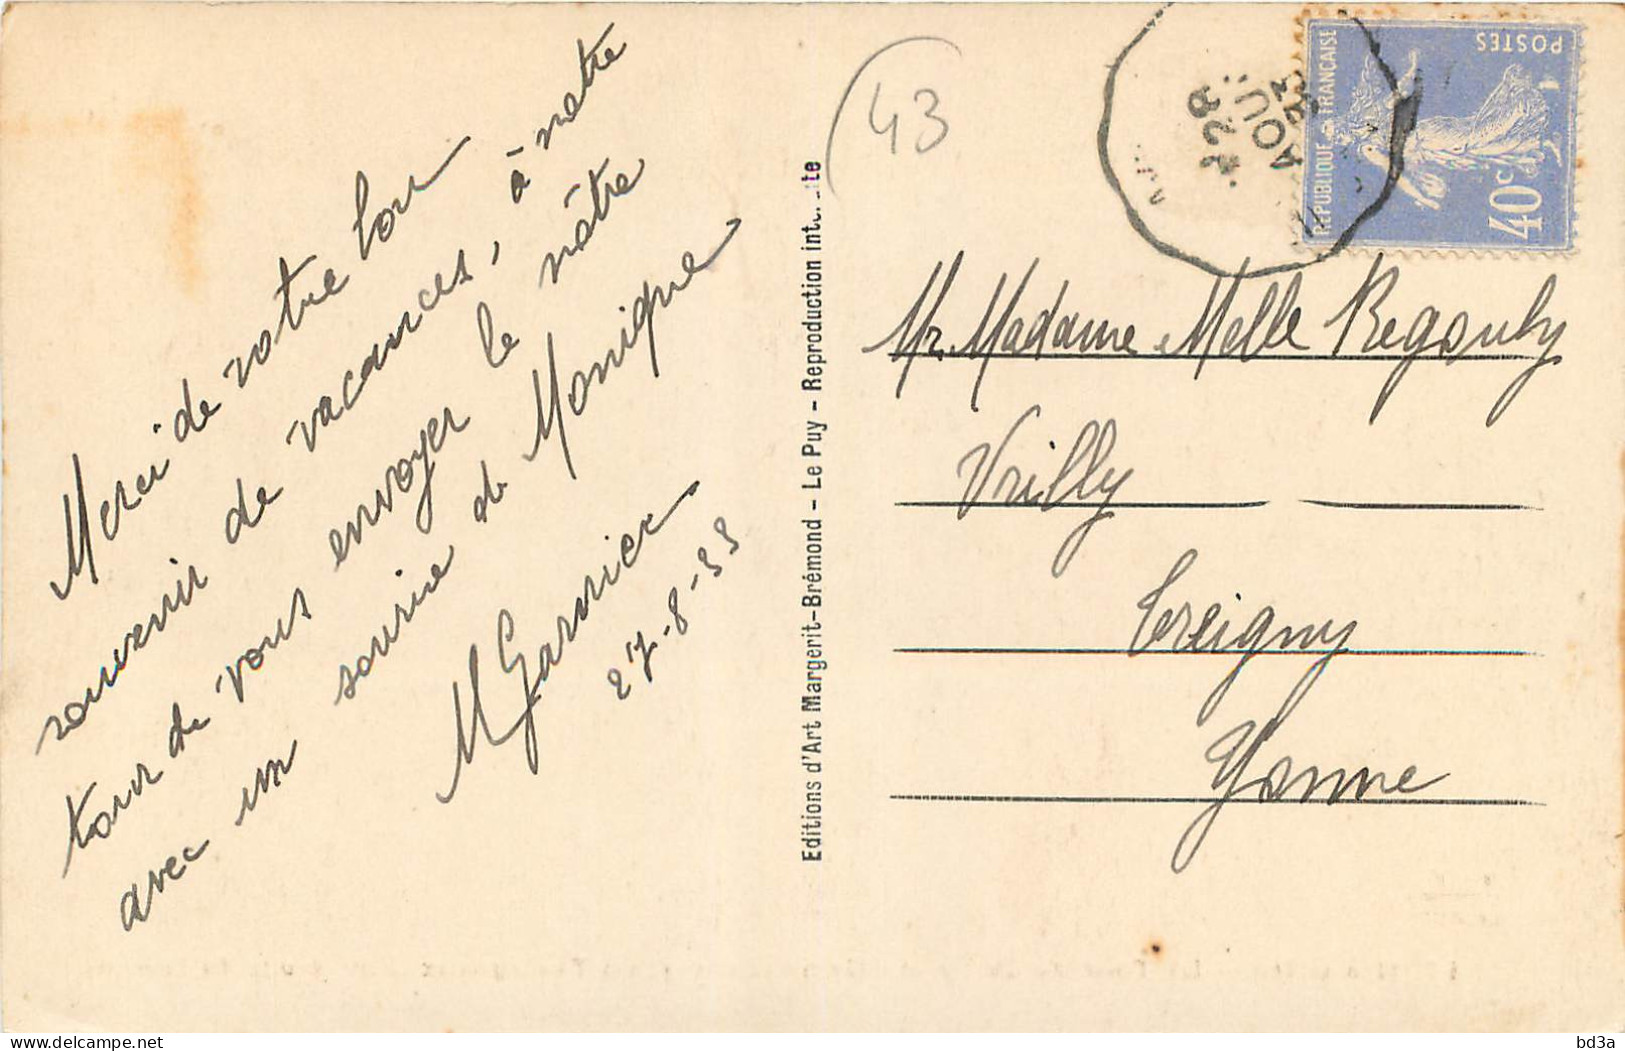 Merci de votre bon
souvenir de vacances, à notre
tour de vous envoyer le nôtre
avec un sourire de Monique
M Garnier
27-8-33
Editions d'Art Margerit-Brémond - Le Puy - Reproduction
43
28
AOU
33
POSTES
REPUBLIQUE FRANÇAISE
40c
Mr. Madame Melle
Vrilly
Treigny
Yonne
bd3a